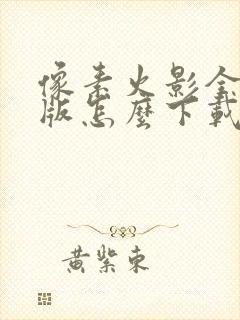 像素火影全
版怎麼下載
黃紫東